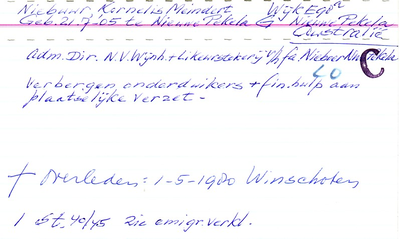 Niebuur, Kornelis Mundert Wijk Ego
Geb. 21.7.'05 te Nieuwe Pekela G Nieuwe Pekela
Australië
Adm. Dir. N.V. Wijnh. + Likeurstokerij v/h fa. Niebuur N. Pekela
C
LO
Verbergen onderduikers + fin. hulp aan
plaatselijke verzet -
† Overleden: 1-5-1980 Winschoten
1 St. 40/45 zie emigr. verkl.